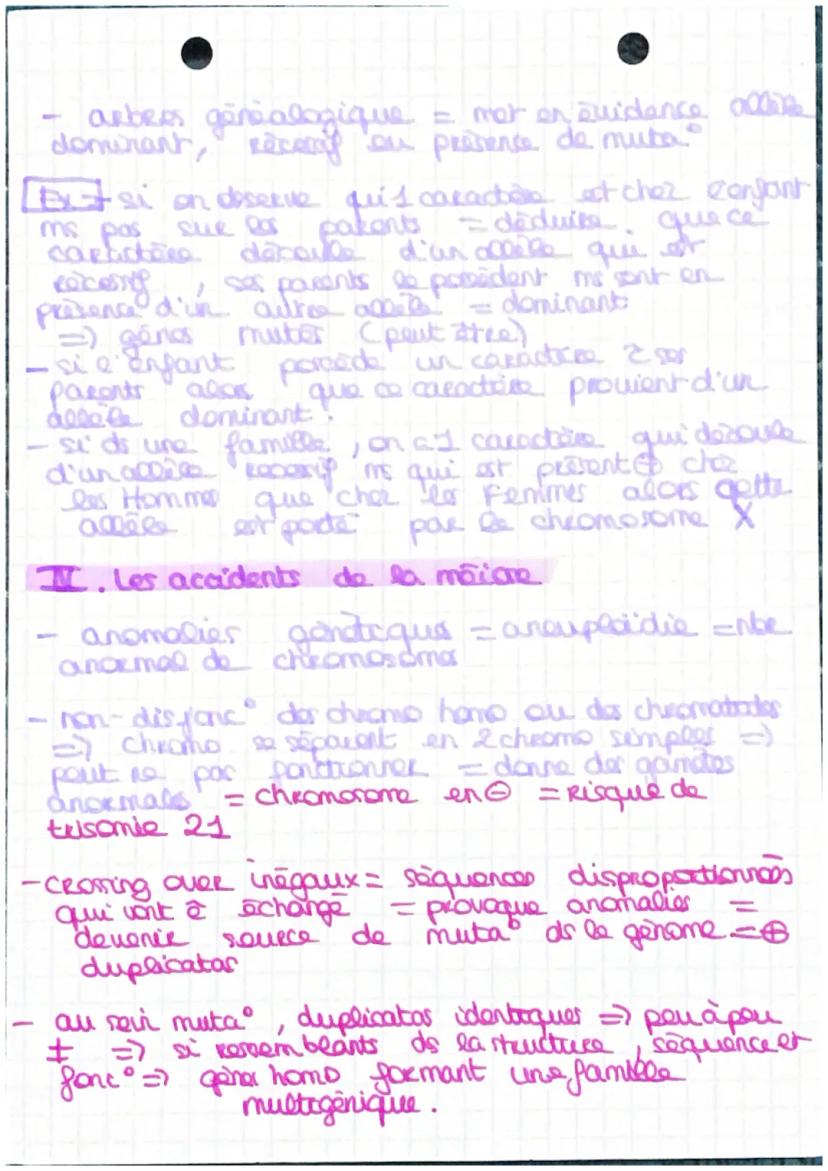 - arbres généalogique = met en évidence allèle
dominant, récessif ou présence de muta°
Ex → si on observe qu'1 caractère est chez l'enfant
ms pas sur les parents = déduire que ce
caractère découle d'un allèle qui est
récessif, ses parents le possèdent ms sont en
présence d'un autre allèle = dominant
=> gènes mutés (peut être)
- si l'enfant possède un caractère 2 ses
parents alors que ce caractère provient d'un
allèle dominant.
- si ds une famille, on a 1 caractère qui découle
d'un allèle récessif ms qui est présent ⊕ chez
les Hommes que chez les Femmes alors cette
allèle est porté par le chromosome X
IV. Les accidents de la méiose
- anomalies génétiques = aneuploïdie = nbr
anormal de chromosomes
- non-disjonc° des chromo homo ou des chromatides
=> chromo se séparent en 2 chromo simples =>
peut ne pas fonctionner = donne des gamètes
anormales = chromosome en ⊖ = risque de
trisomie 21
- crossing over inégaux = séquences disproportionnées
qui vont ê échangé = provoque anomalies =
devenir source de muta° ds le génome = ⊕
duplicatas
- au sein muta°, duplicatas identiques => peu à peu
≠ => si ressemblants ds la structure, séquence et
fonc° => gènes homo formant une famille
multigénique.